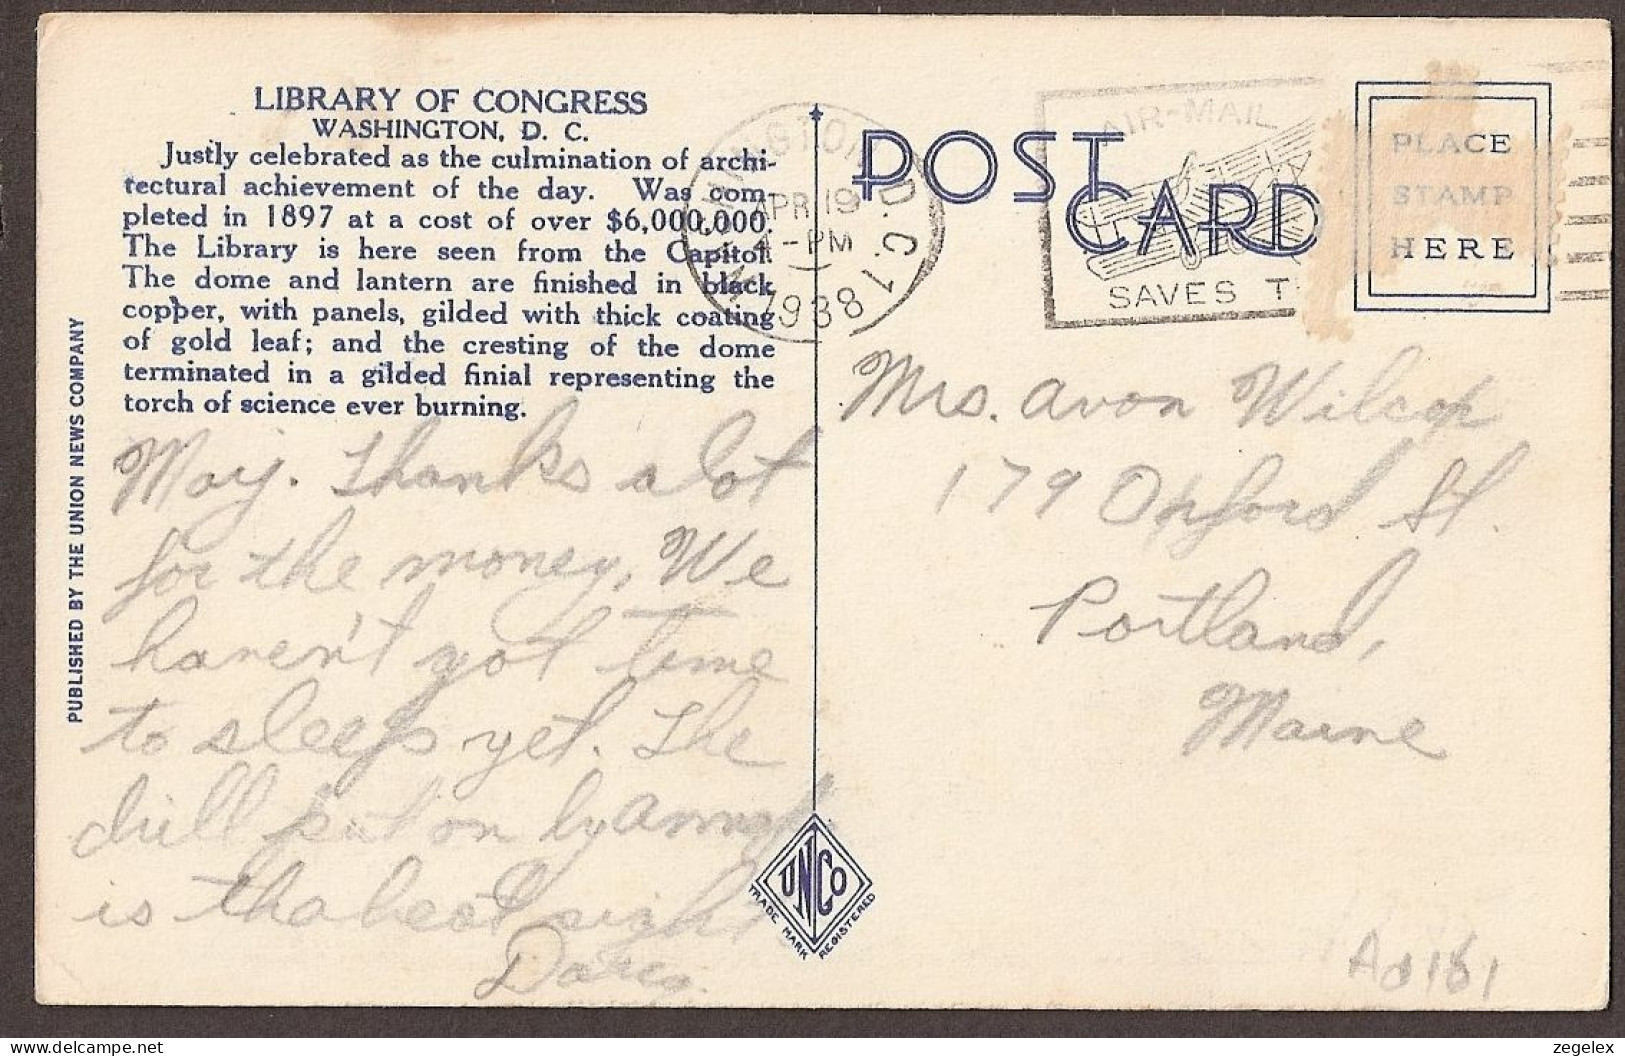 LIBRARY OF CONGRESS
WASHINGTON, D. C.
Justly celebrated as the culmination of archi-
tectural achievement of the day. Was com-
pleted in 1897 at a cost of over $6,000,000.
The Library is here seen from the Capitol.
The dome and lantern are finished in black
copper, with panels, gilded with thick coating
of gold leaf; and the cresting of the dome
terminated in a gilded finial representing the
torch of science ever burning.
PUBLISHED BY THE UNION NEWS COMPANY
May. Thanks a lot
for the money. We
haven't got time
to sleep yet. The
drill put on by
is the best sight
WASHINGTON, D. C. 1
APR 19
4-PM
1938
AIR-MAIL
SAVES
POST
CARD
PLACE
STAMP
HERE
Mrs. Avon Wilcox
179 Oxford St.
Portland,
Maine
UNCO
TRADE MARK REGISTERED
delcampe.net
zegelex